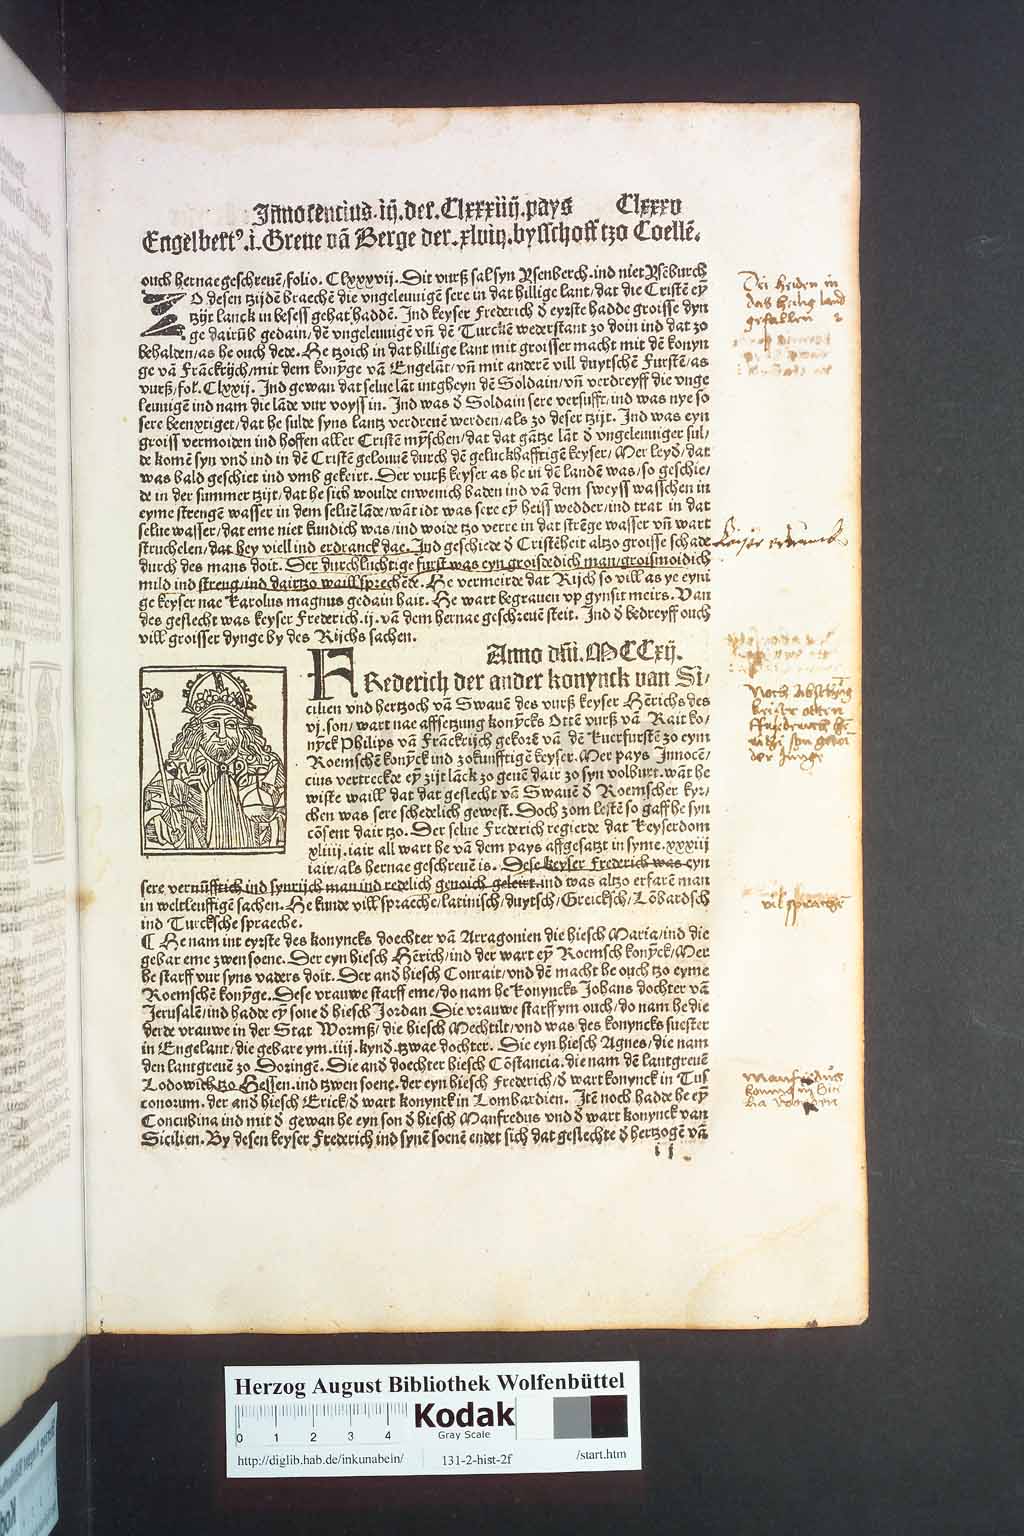 Innocentius.iij.der.Clxxxiiij.pays Clxxxv
Engelbertꝰ.i.Greue vā Berge der.xlviij.bysschoff tzo Coellē.
ouch hernae geschreuē/folio. Clxxxvij. Dit vurß sal syn Ysenberch.ind niet Yseburch
ZO desen tzijdē braechē die vngeleuuigē sere in dat hillige lant/dat die Cristē eȳ
tzijt lanck in besess gehat haddē. Ind keyser Frederich d eyrste hadde groisse dyn
ge dairūb gedain/dē vngeleuuigē vn̄ dē Turckē wederstant zo doin ind dat zo
behalden/as he ouch dede. He tzoich in dat hillige lant mit groisser macht mit dē konyn
ge vā Frāckrijch/mit dem konȳge vā Engelāt/vn̄ mit anderē vill duytschē Furstē/as
vurß/fol. Clxxij. Ind gewan dat selue lāt intgheyn dē Soldain/vn̄ verdreyff die vnge
leuuigē ind nam die lāde vur voyss in. Ind was d Soldain sere versufft/ind was nye so
sere beenxtiget/dat he sulde syns lantz verdreuē werden/als zo deser tzijt. Ind was eyn
groiss vermoiden ind hoffen aller Cristē mȳschen/dat dat gātze lāt d vngeleuuiger sul/
de komē syn vnd ind in dē Cristē gelouuē durch dē geluckhafftigē keyser/Mer leyd/dat
was bald geschiet ind vmb gekeirt. Der vurß keyser as he in dē landē was/so geschie/
de in der summer tzijt/dat he sich woulde enwenich baden ind vā dem sweyss wasschen in
eyme strengē wasser in dem seluē lāde/wāt idt was sere eȳ heiss wedder/ind trat in dat
selue wasser/dat eme niet kundich was/ind woide tzo verre in dat strēge wasser vn̄ wart
struchelen/dat hey viell ind erdranck dae. Ind geschiede d Cristēheit altzo groisse schade
durch des mans doit. Der durchluchtige furst was eyn groisdedich man/groismoidich
mild ind streng/ind dairtzo waill sprechēde. He vermeirde dat Rijch so vill as ye eyni
ge keyser nae Karolus magnus gedain hait. He wart begrauen vp gynsit meirs. Van
des geslecht was keyser Frederich.ij.vā dem hernae geschreuē steit. Ind d bedreyff ouch
vill groisser dynge by des Rijchs sachen.
Anno dn̄i.MCCxij.
FRederich der ander konynck van Si/
cilien vnd hertzoch vā Swauē des vurß keyser Hērichs des
vj.son/wart nae affsetzung konȳcks Ottē vurß vā Rait ko/
nȳck Philips vā Frāckrijch gekorē vā dē Kuerfurstē zo eym
Roemschē konȳck ind zokunfftigē keyser. Mer pays Innocē/
cius vertreckde eȳ zijt lāck zo geuē dair zo syn volburt.wāt he
wiste waill dat dat geslecht vā Swauē d Roemscher kyr/
chen was sere schedelich gewest. Doch zom lestē so gaff he syn
cōsent dair tzo. Der selue Frederich regierde dat Keyserdom
xliiij.iair all wart he vā dem pays affgesatzt in syme.xxxiij
iair/als hernae geschreuē is. Dese keyser Frederich was eyn
sere vernūfftich ind synrijch man ind redelich genoich geleirt.ind was altzo erfarē man
in weltleuffigē sachen. He kunde vill spraeche/latinisch/duytsch/Greicksch/Lōbardsch
ind Turcksche spraeche.
¶ He nam int eyrste des konyncks doechter vā Arragonien die hiesch Maria/ind die
gebar eme zwen soene. Der eyn hiesch Hērich/ind der wart eȳ Roemsch konȳck/Mer
he starff vur syns vaders doit. Der and hiesch Conrait/vnd dē macht he ouch tzo eyme
Roemschē konȳge. Dese vrauwe starff eme/do nam he Konyncks Johans dochter vā
Jerusalē/ind hadde eȳ sone d hiesch Jordan Die vrauwe starff ym ouch/do nam he die
derde vrauwe in der Stat Wormß/die hiesch Mechtilt/vnd was des konyncks suester
in Engelant/die gebare ym.iiij.kynd.tzwae dochter. Die eyn hiesch Agnes/die nam
den lantgreuē zo Doringē. Die and doechter hiesch Cōstancia.die nam dē lantgreuē
Lodowich tzo Hessen.ind tzwen soene.der eyn hiesch Frederich/d wart konynck in Tus
conorum.der and hiesch Erick/d wart konynck in Lombardien. Itē noch hadde he eȳ
Concubina ind mit d gewan he eyn son d hiesch Manfredus vnd d wart konynck van
Sicilien. By desen keyser Frederich ind synē soenē endet sich dat geslechte d hertzogē vā
ii
Dei heiden in
das heilig land
gefallen
Keiser erdrank
Noch absetzung
keiser otten
der Junge
vil sprachē
Manfredus
konung in Sici
lia
Herzog August Bibliothek Wolfenbüttel
0 1 2 3 4
Kodak
Gray Scale
http://diglib.hab.de/inkunabeln/ 131-2-hist-2f /start.htm